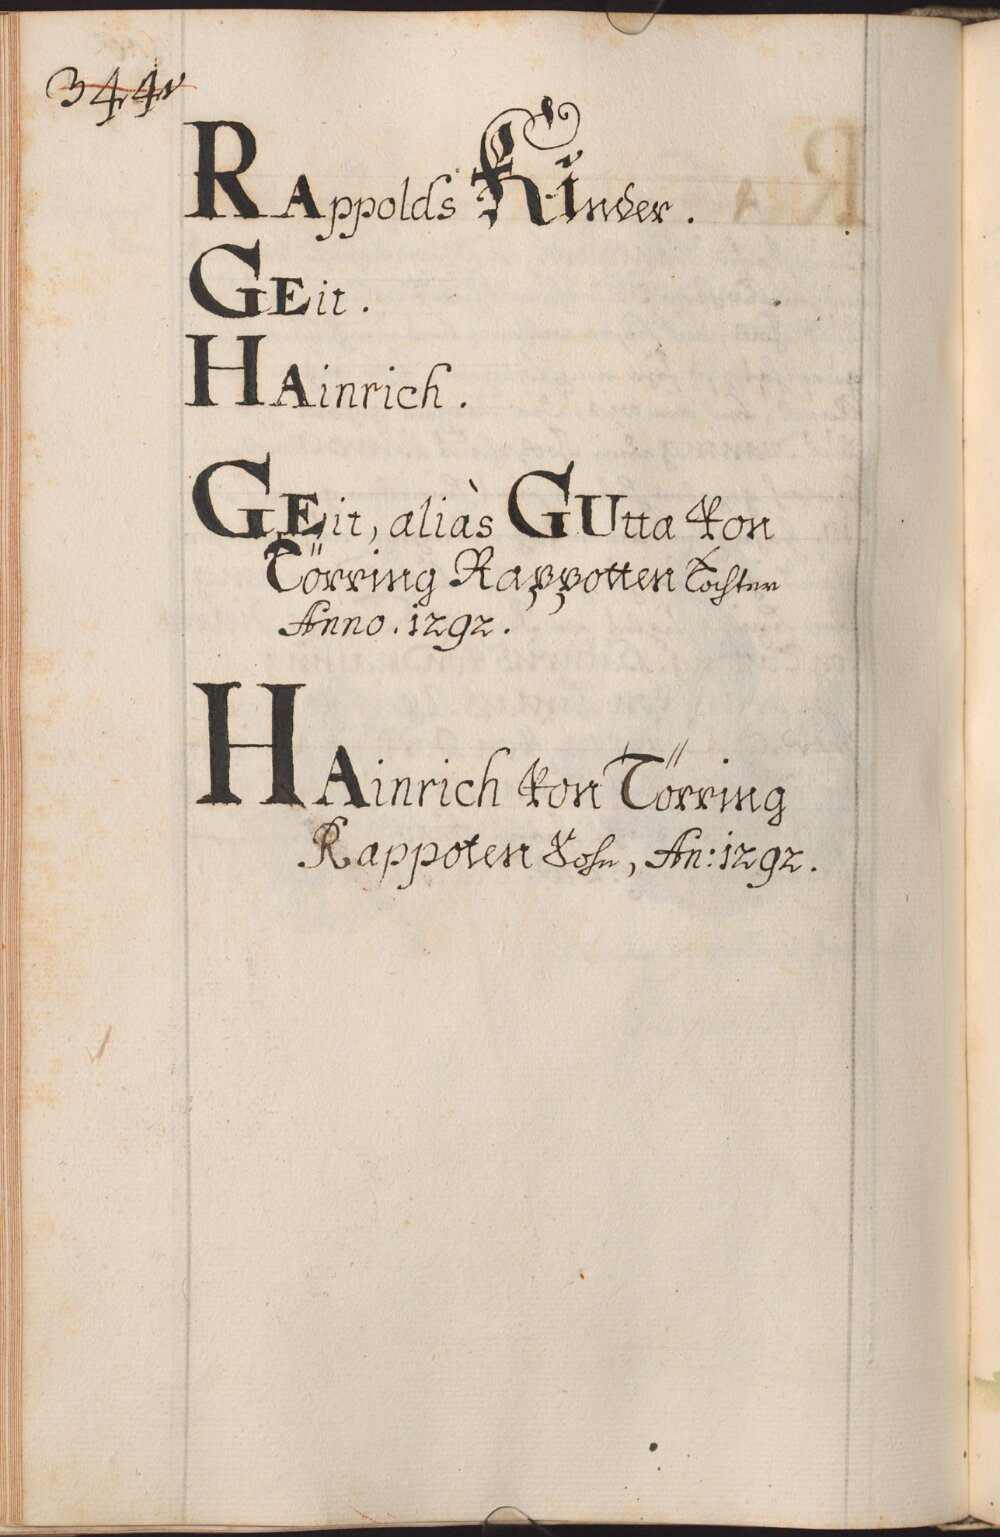 344v
RAppolds KInder.
GEit.
HAinrich.
GEit, aliàs GUtta von
Törring Rappotten Tochter
Anno. 1292.
HAinrich von Törring
Rappoten Sohn, An: 1292.